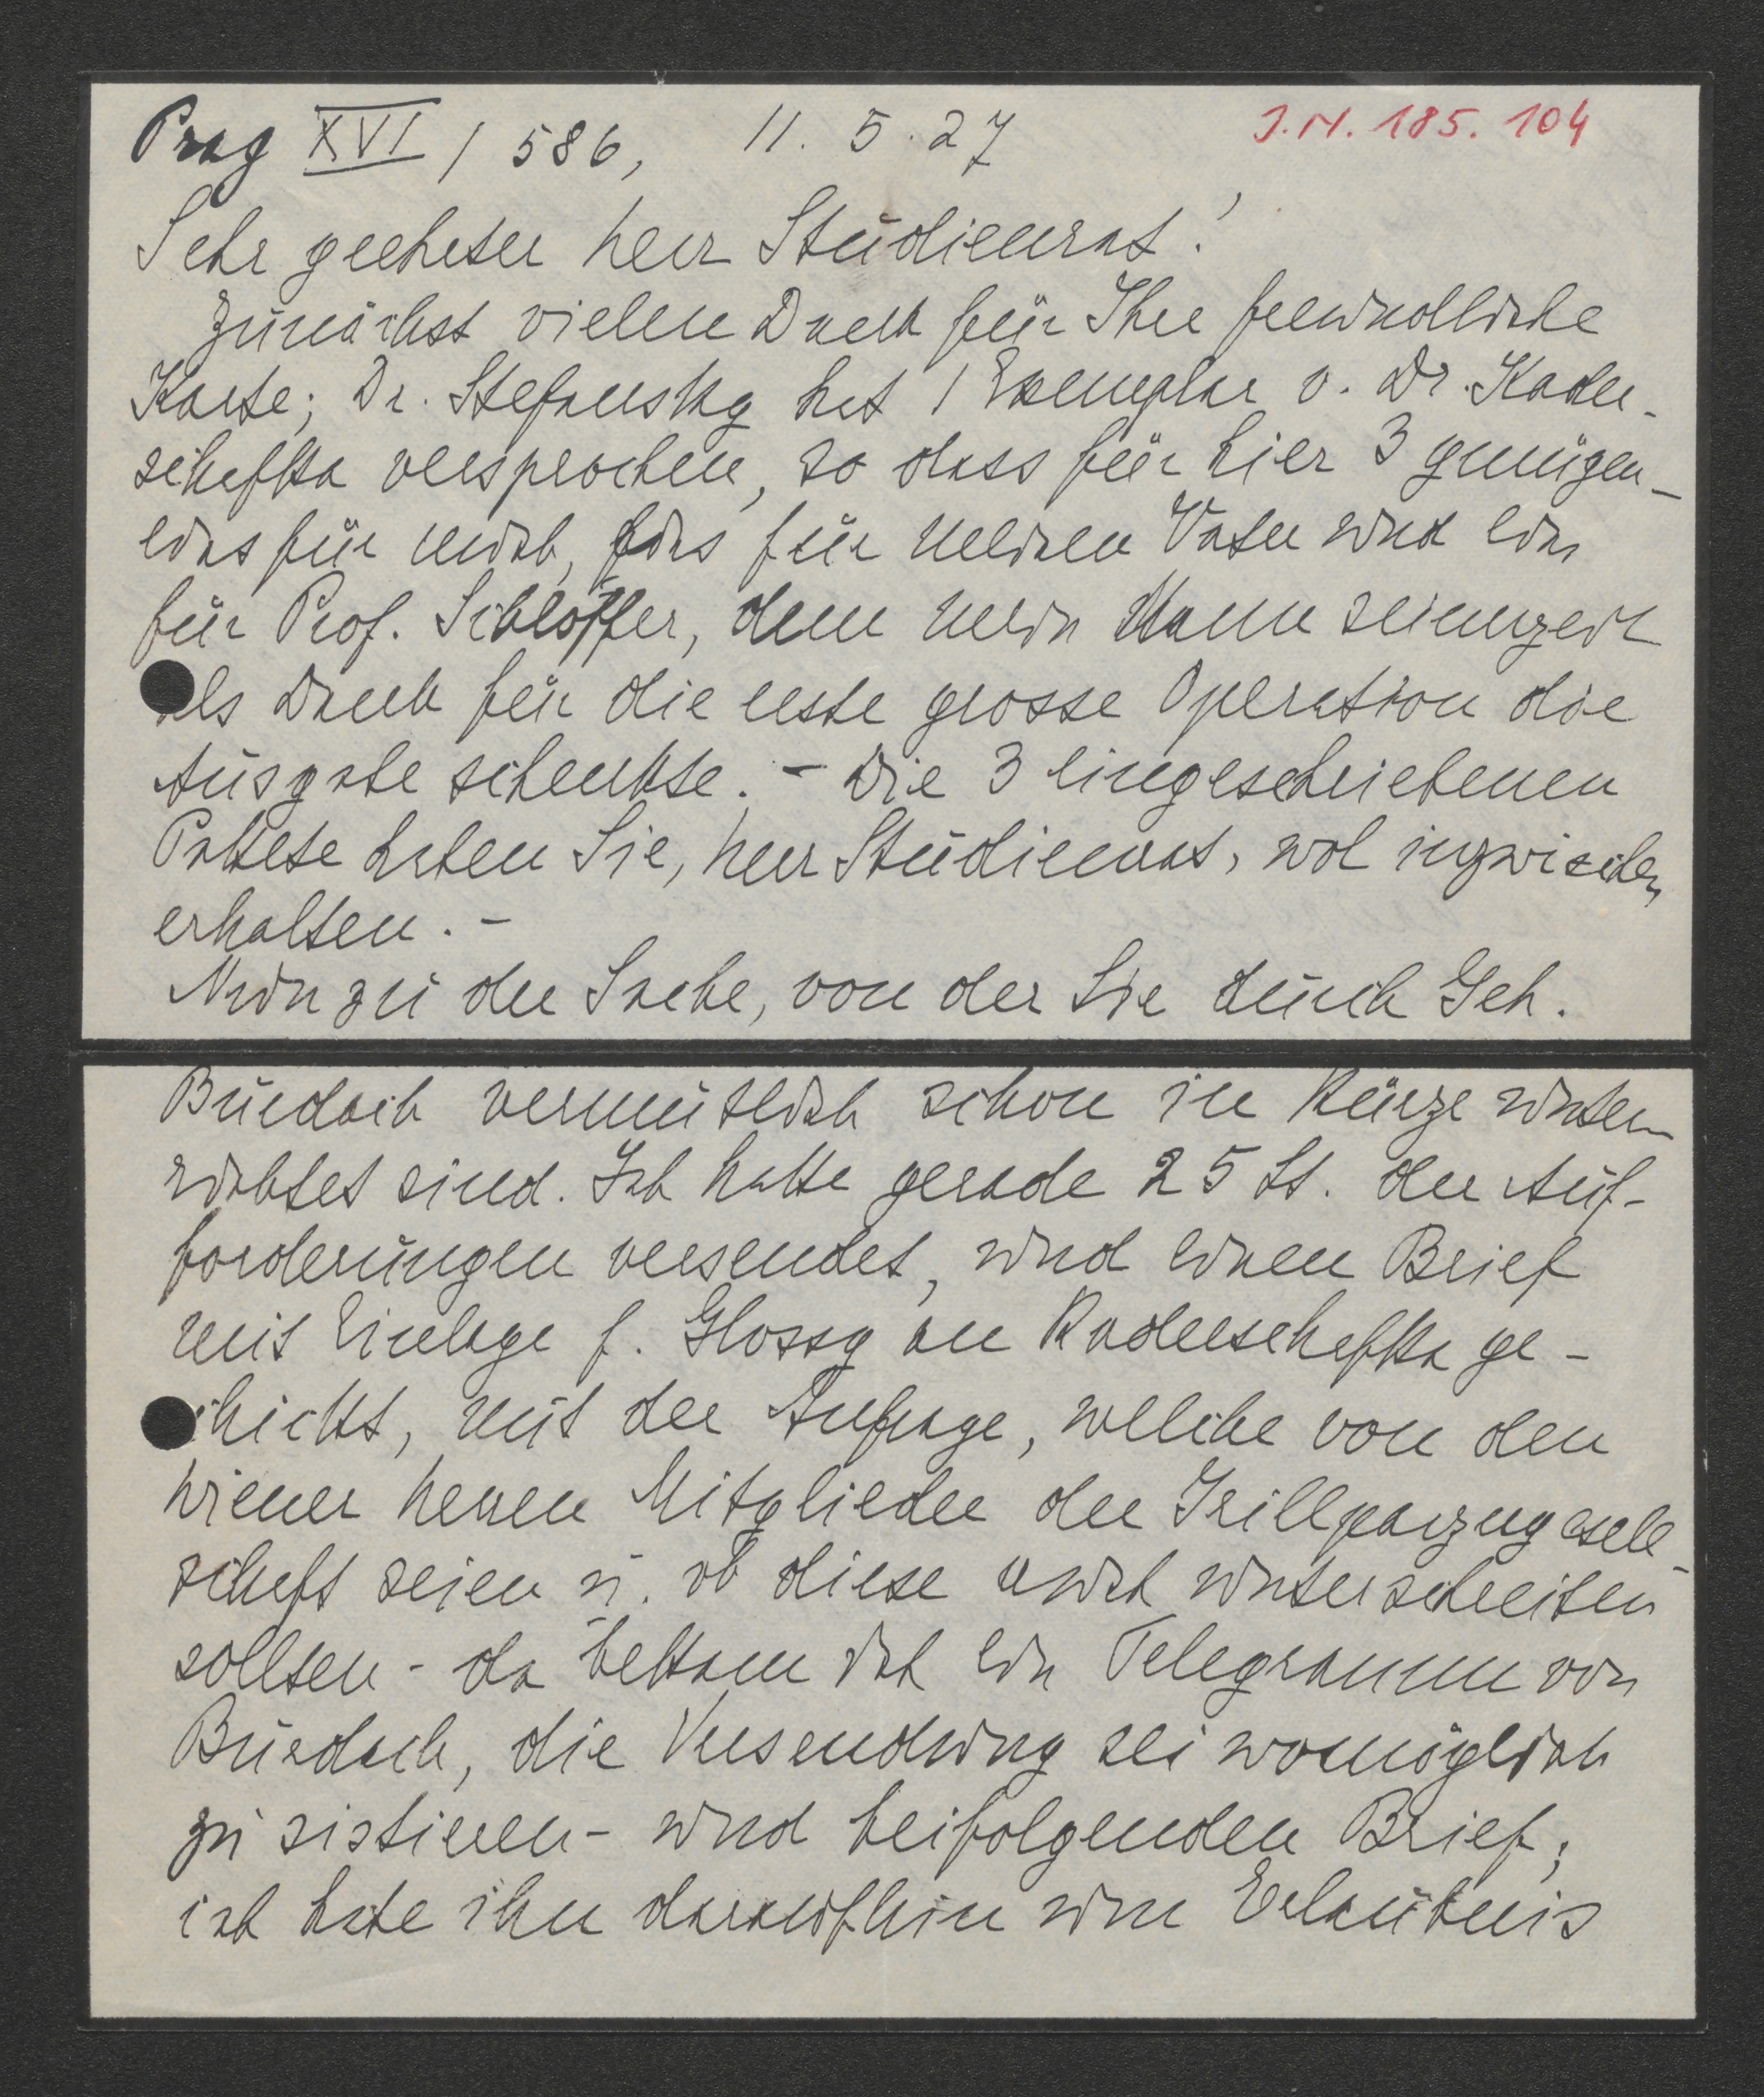 Prag XVI / 586, 11. 5. 27
J.N. 185.104
Sehr geehrter Herr Studienrat!
Zunächst vielen Dank für Ihre freundliche
Karte; Dr. Stefansky hat 1 Exemplar v. Dr. Kader-
schafka versprochen, so dass für hier 3 genügen-
eins für mich, eins für meinen Vater und eins
für Prof. Schloffer, dem mein Mann seinerzeit
als Dank für die erste grosse Operation die
Ausgabe schenkte. - Die 3 eingeschriebenen
Pakete haben Sie, Herr Studienrat, wol inzwischen
erhalten. -
Nun zu der Sache, von der Sie durch Geh.
Burdach vermutlich schon in Kürze unter-
richtet sind. Ich hatte gerade 25 St. der Auf-
forderungen versendet, und einen Brief
mit Einlage f. Glossy an Kaderschafka ge-
schickt, mit der Anfrage, welche von den
Wiener Herren Mitglieder der Grillparzergesell-
schaft seien u. ob diese auch unterschreiben
sollten - da bekam ich ein Telegramm von
Burdach, die Versendung sei womöglich
zu sistieren - und beifolgenden Brief;
ich habe ihn daraufhin um Erlaubnis